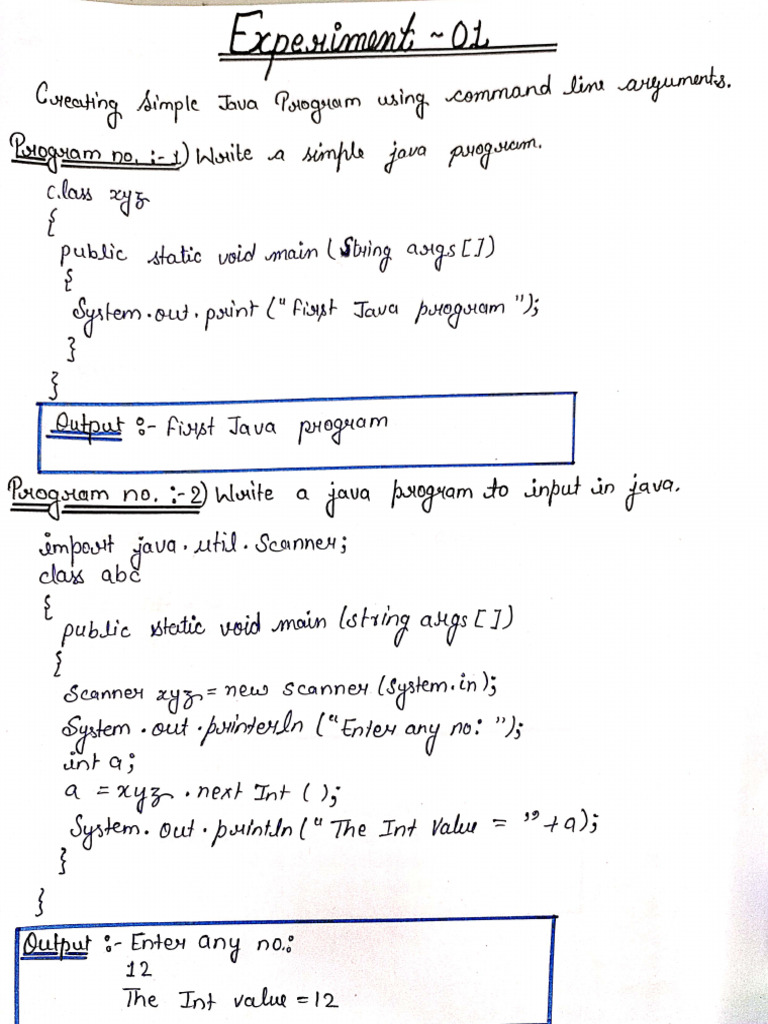 Experiment ~ 01
Creating Simple Java Program using command line arguments.
Program no. :- 1) Write a simple java program.
class xyz
{
public static void main (String args [])
{
System.out.print ("First Java program");
}
}
Output :- First Java program
Program no. :- 2) Write a java program to input in java.
import java.util.Scanner;
class abc
{
public static void main (string args [])
{
Scanner xyz = new scanner (System.in);
System.out.printerln ("Enter any no: ");
int a;
a = xyz.next Int ();
System.out.println (" The Int Value = "+a);
}
}
Output :- Enter any no.:
12
The Int value = 12